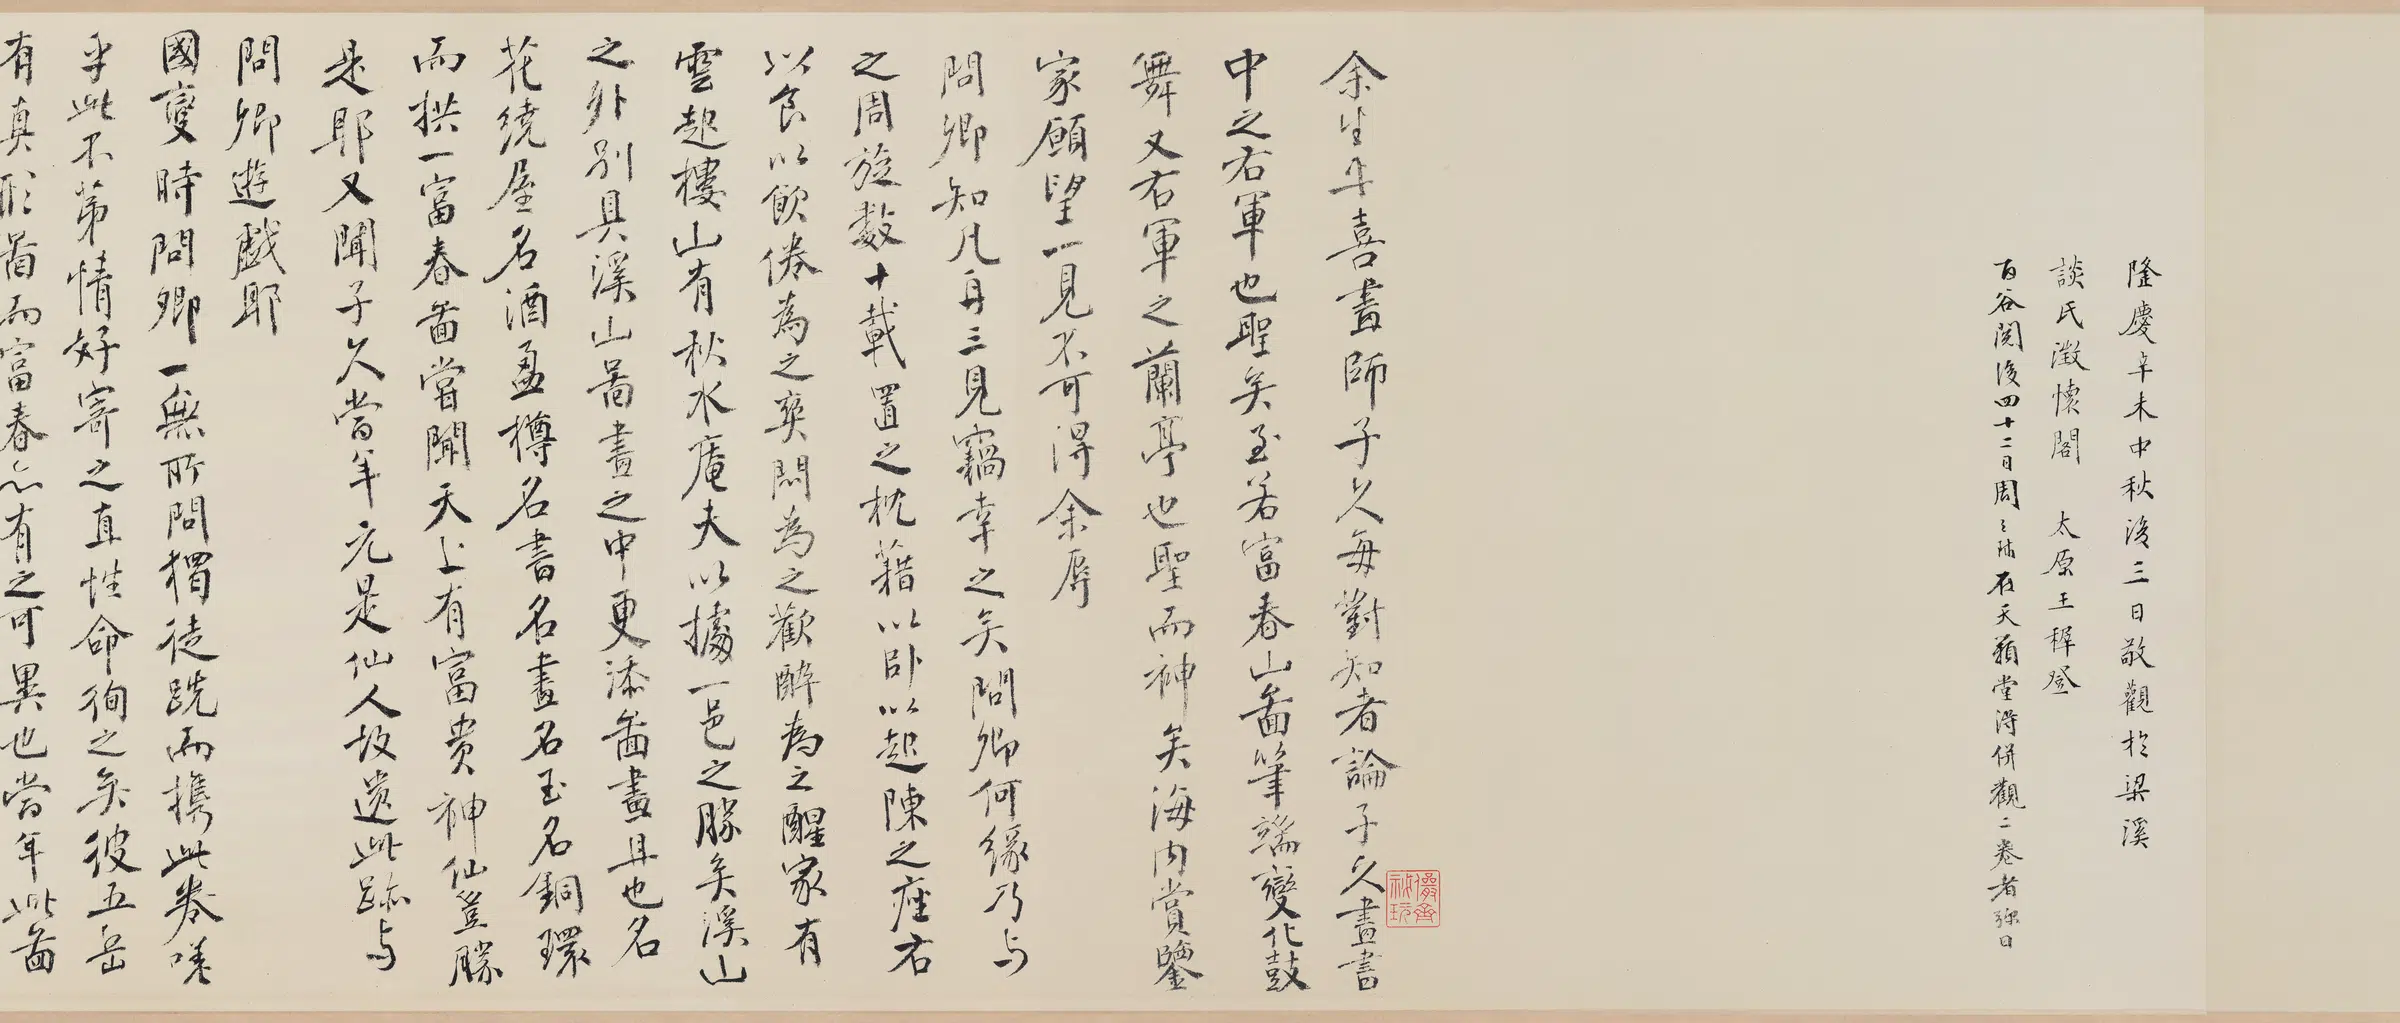 隆慶辛未中秋後三日敬觀於梁溪
談氏澂懷閣 太原王穉登
百谷閱後四十二日周天球在天籟堂得併觀二卷者弥日
余生平喜畫師子久每對知者論子久畫書
中之右軍也聖矣至若富春山啚筆端變化鼓
舞又右軍之蘭亭也聖而神矣海內賞鑒
家願望一見不可得余辱
問卿知凡再三見竊幸之矣問卿何緣乃与
之周旋数十載置之枕藉以卧以起陳之座右
以食以飲倦為之爽悶為之歡醉為之醒家有
雲起樓山有秋水庵夫以據一邑之勝矣溪山
之外别具溪山啚畫之中更添啚畫且也名
花繞屋名酒盈樽名書名畫名玉名銅環
而拱一富春啚嘗聞天上有富貴神仙豈勝
是耶又聞子久當年元是仙人故遺此跡与
問卿遊戲耶
國變時問卿一無所問獨徒跣而携此卷嗟
乎此不第情好寄之直性命徇之矣彼五岳
有真形啚而富春亦有之可異也當年此啚
儼齋祕玩